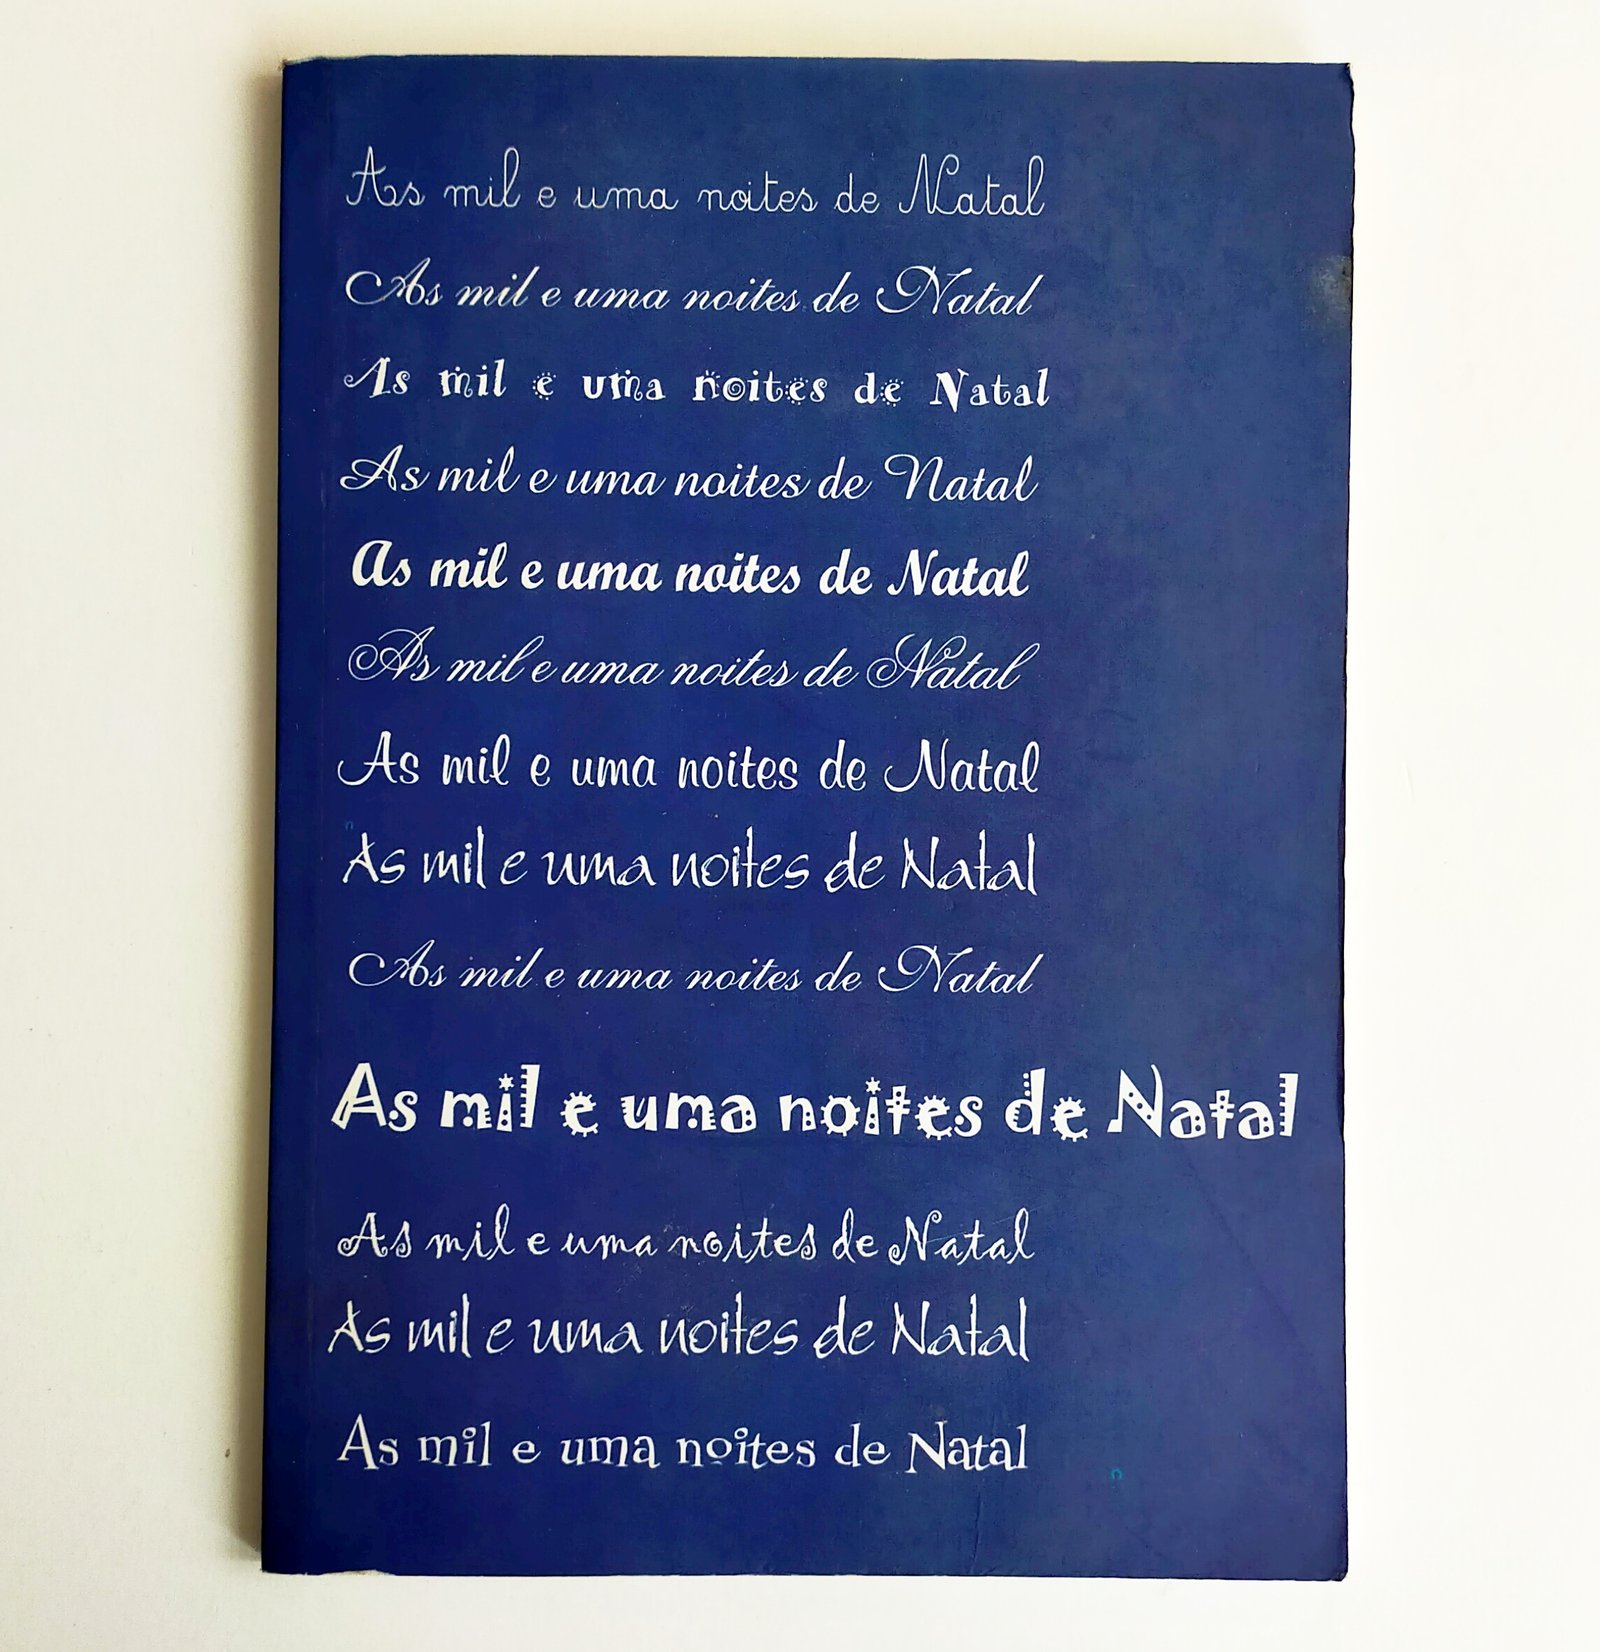 As mil e uma noites de Natal
As mil e uma noites de Natal
As mil e uma noites de Natal
As mil e uma noites de Natal
As mil e uma noites de Natal
As mil e uma noites de Natal
As mil e uma noites de Natal
As mil e uma noites de Natal
As mil e uma noites de Natal
As mil e uma noites de Natal
As mil e uma noites de Natal
As mil e uma noites de Natal
As mil e uma noites de Natal